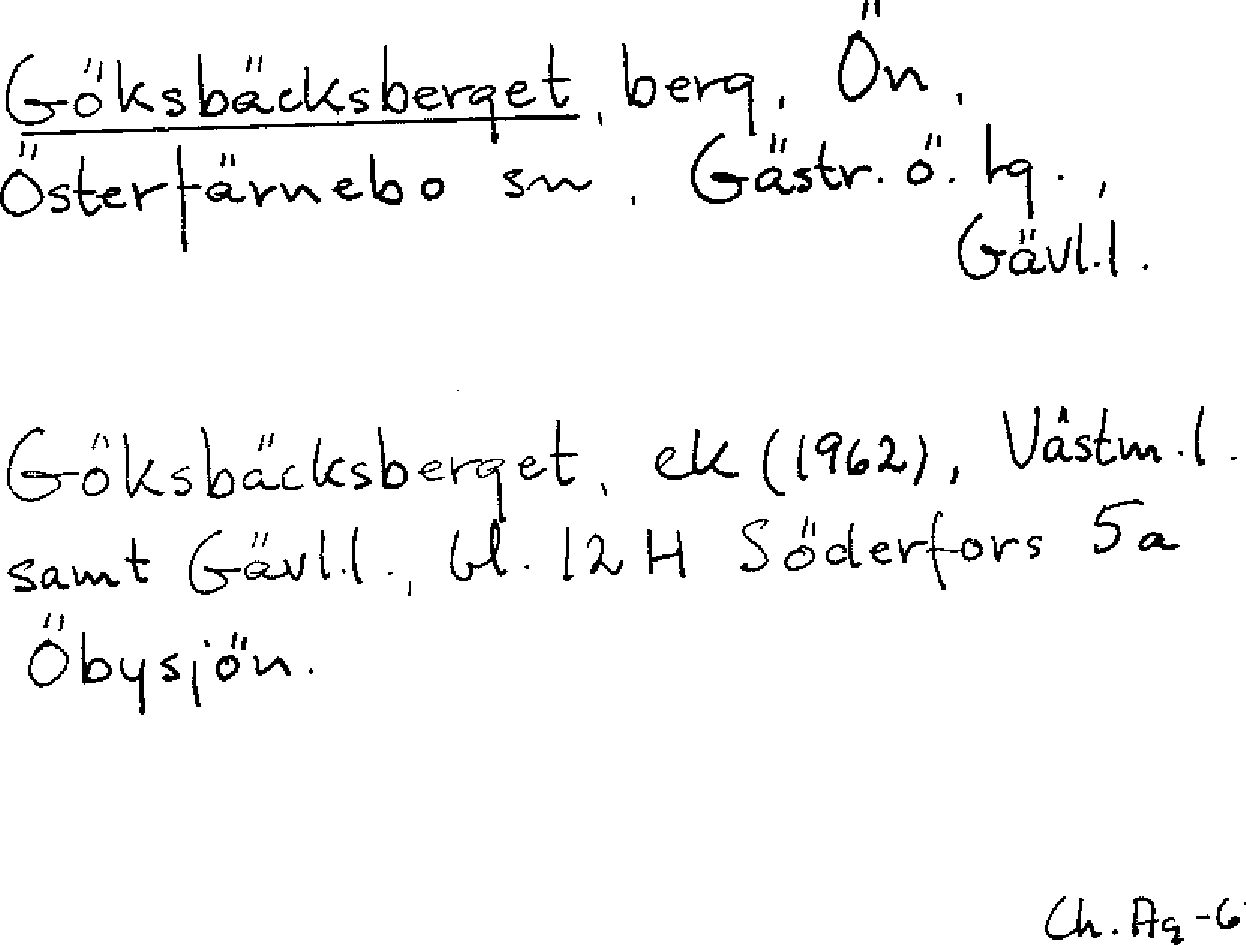 Göksbäcksberget, berg, Ön,
Österfärnebo sn, Gästr. ö. tg.,
Gävl.l.
Göksbäcksberget, ek (1962), Västm.l.
samt Gävl.l., bl. 12 H Söderfors 5a
Öbysjön.
Ch. Ag -6